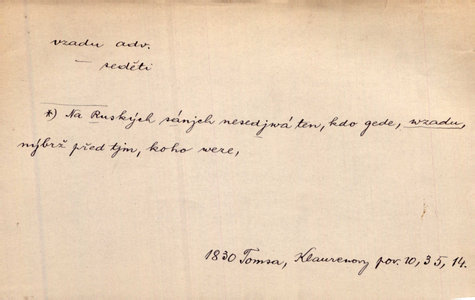 vzadu adv.
— seděti
*) Na Ruských sánjch nesedjwá ten, kdo gede, wzadu,
nýbrž před tým, koho weze,
1830 Tomsa, Klaurenovy pov. 10, 35, 14.